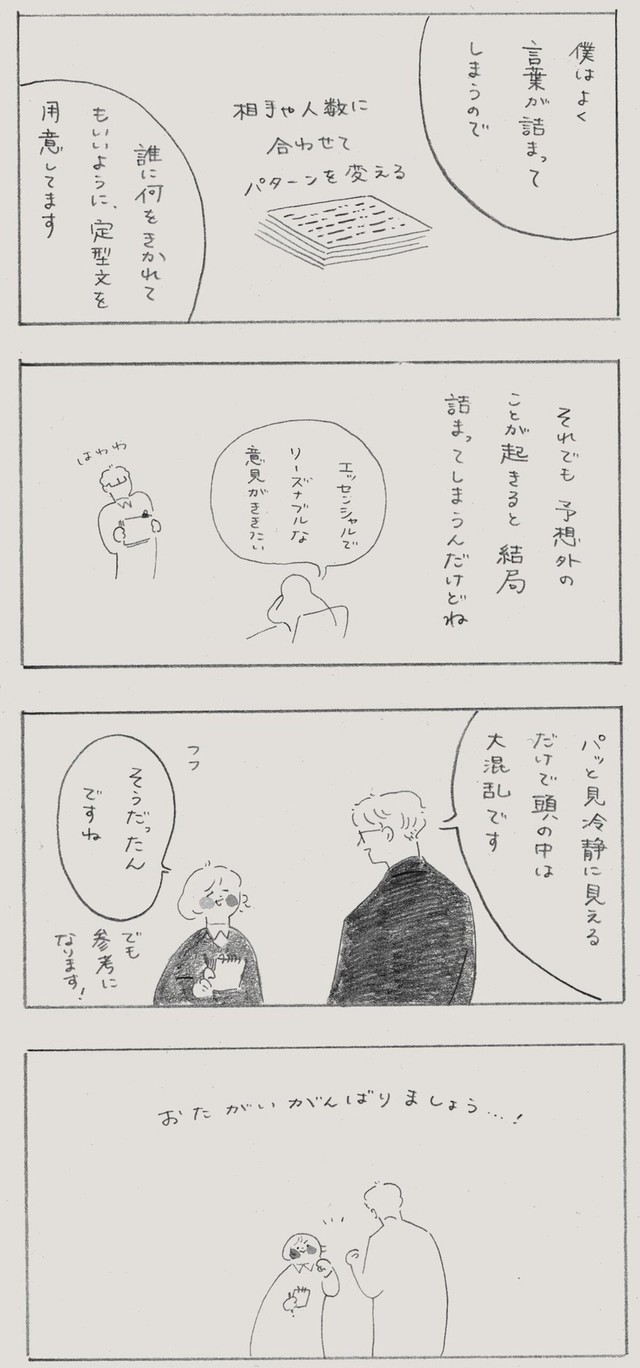 僕はよく
言葉が詰まって
しまうので
相手や人数に
合わせて
パターンを変える
誰に何をきかれて
もいいように、定型文を
用意してます
それでも 予想外の
ことが起きると 結局
詰まってしまうんだけどね
エッセンシャルで
リーズナブルな
意見がききたい
はわわ
パッと見冷静に見える
だけで頭の中は
大混乱です
フフ
そうだったん
ですね
でも
参考に
なります!
おたがいがんばりましょう…!